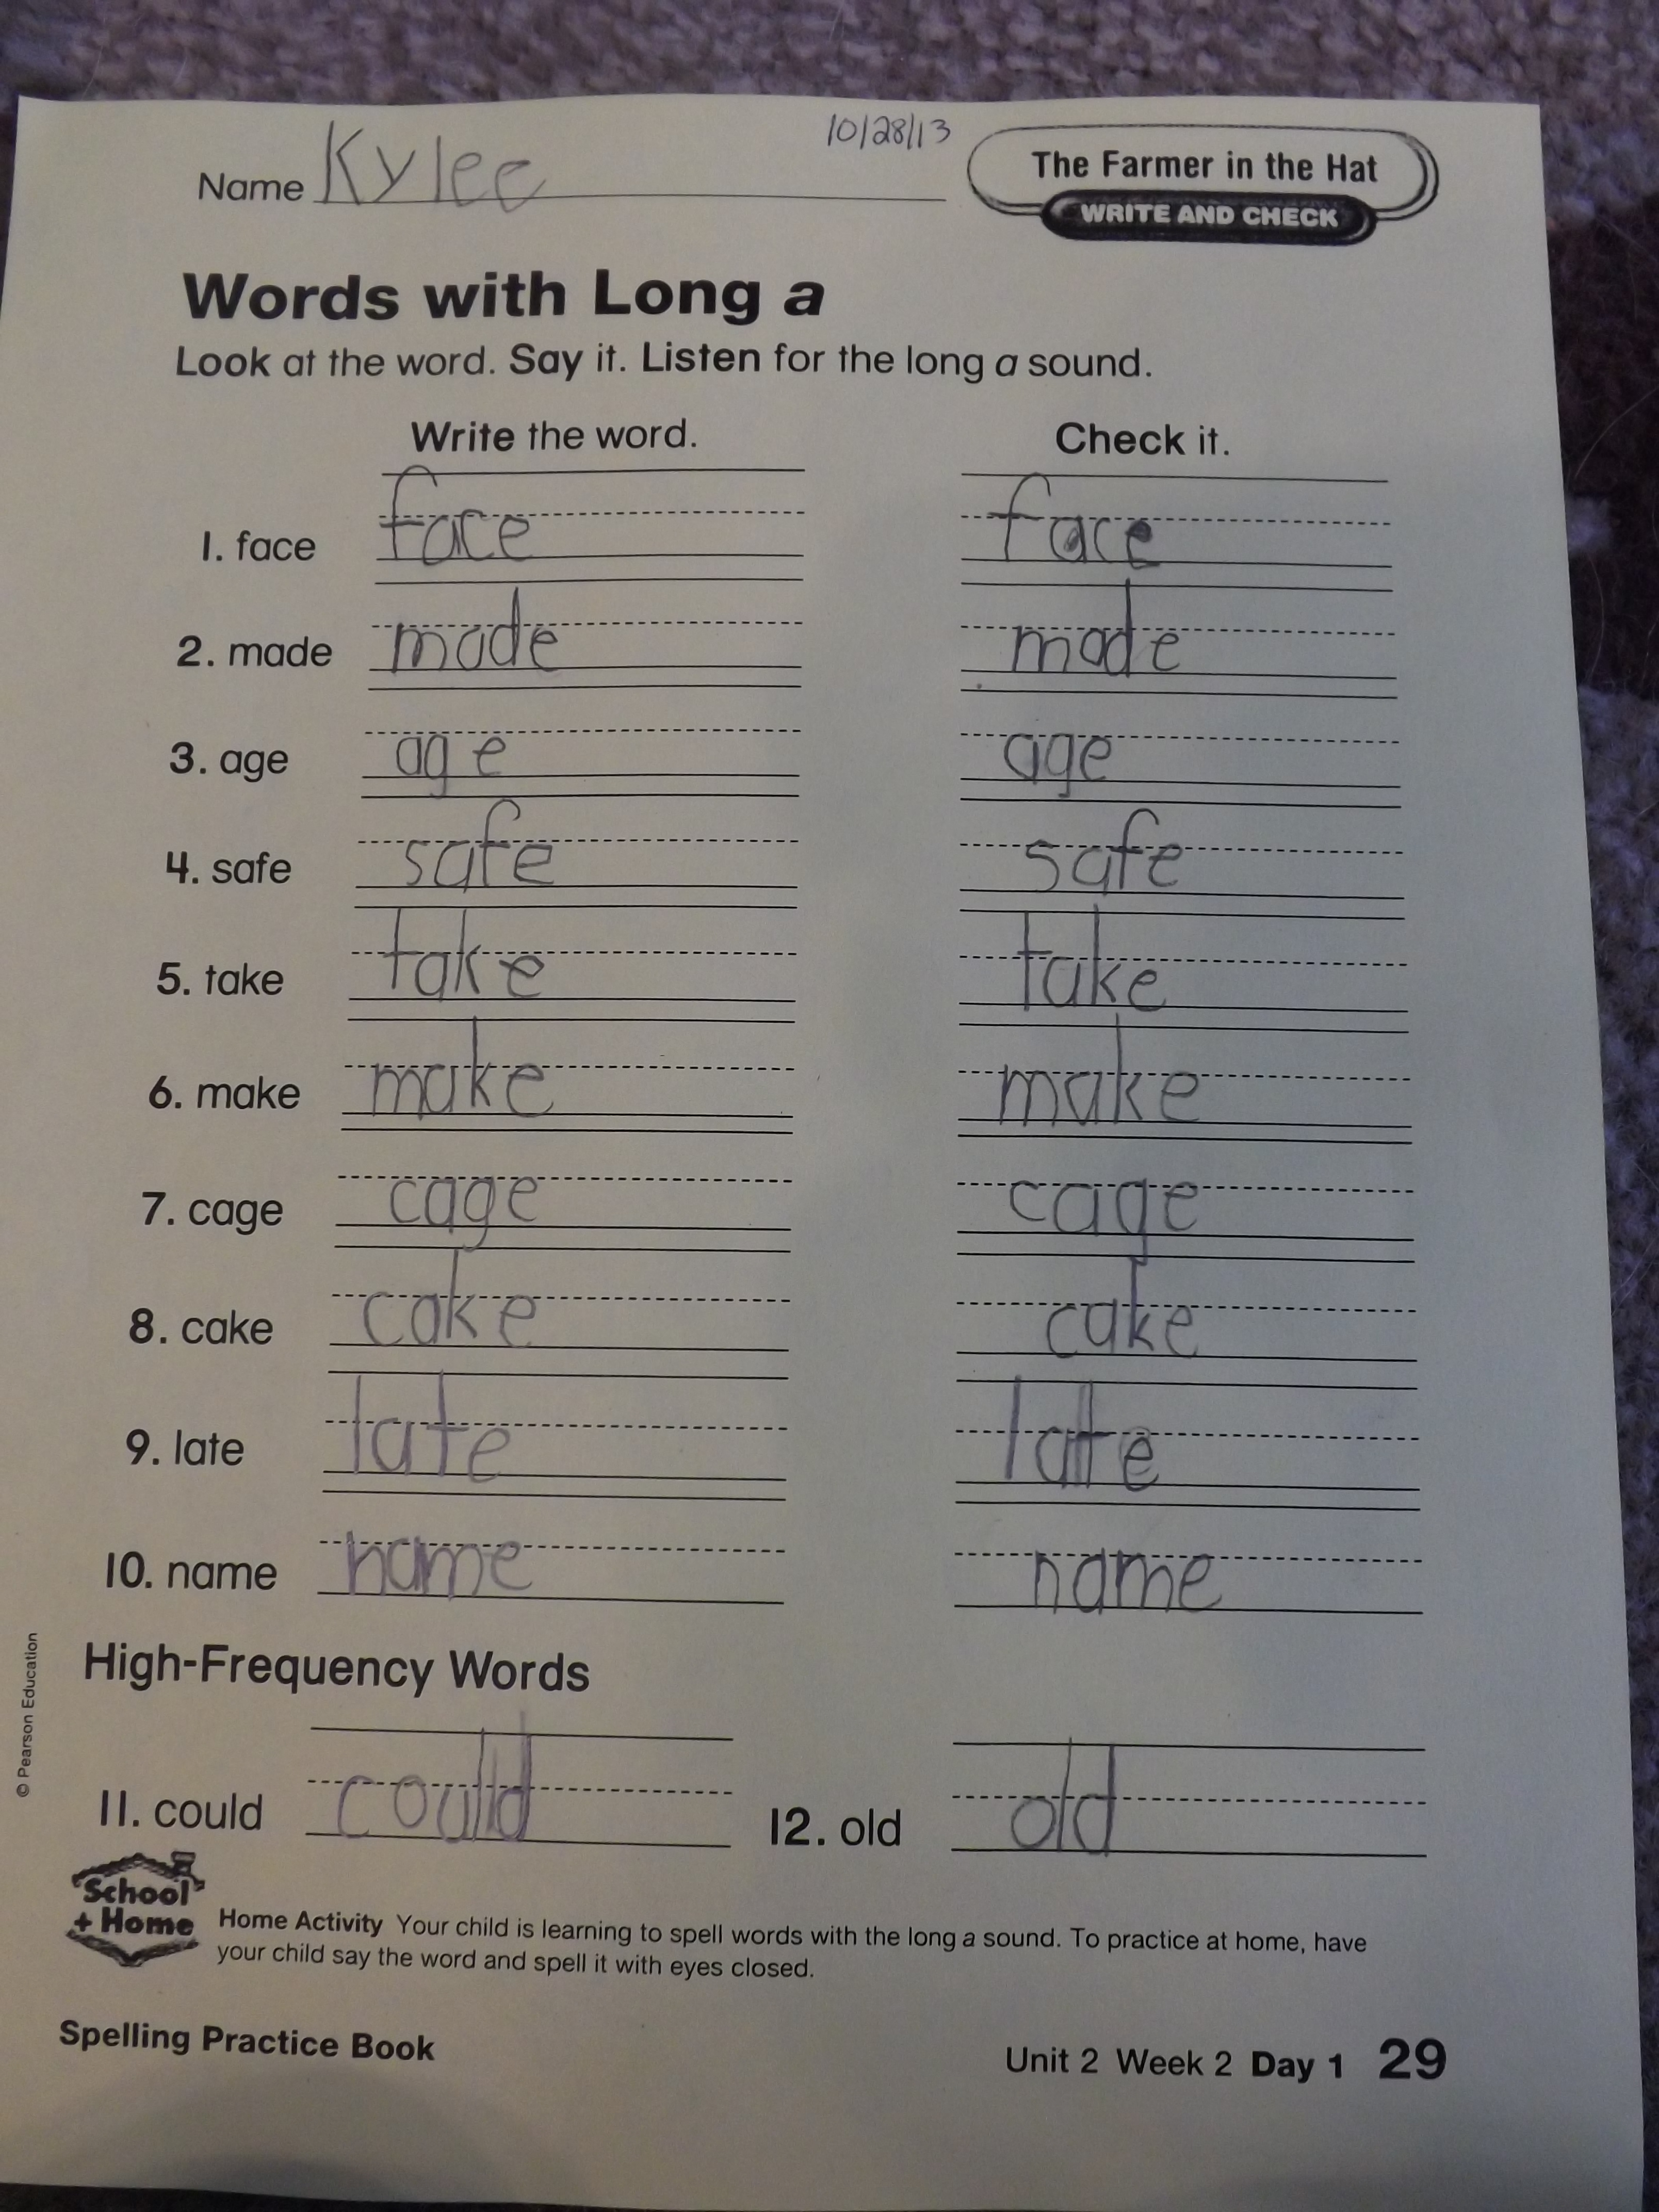 10/28/13
Name Kylee
The Farmer in the Hat
WRITE AND CHECK
Words with Long a
Look at the word. Say it. Listen for the long a sound.
Write the word. Check it.
1. face face face
2. made made made
3. age age age
4. safe safe safe
5. take take take
6. make make make
7. cage cage cage
8. cake cake cake
9. late late late
10. name name name
High-Frequency Words
11. could could 12. old old
School
+ Home
Home Activity Your child is learning to spell words with the long a sound. To practice at home, have
your child say the word and spell it with eyes closed.
© Pearson Education
Spelling Practice Book Unit 2 Week 2 Day 1 29